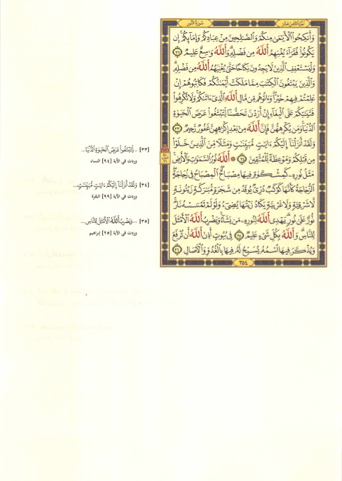 وَأَنكِحُوا۟ ٱلْأَيَـٰمَىٰ مِنكُمْ وَٱلصَّـٰلِحِينَ مِنْ عِبَادِكُمْ وَإِمَآئِكُمْ إِن
يَكُونُوا۟ فُقَرَآءَ يُغْنِهِمُ ٱللَّهُ مِن فَضْلِهِۦ وَٱللَّهُ وَٰسِعٌ عَلِيمٌ ﴿٣٢﴾
وَلْيَسْتَعْفِفِ ٱلَّذِينَ لَا يَجِدُونَ نِكَاحًا حَتَّىٰ يُغْنِيَهُمُ ٱللَّهُ مِن فَضْلِهِۦ
وَٱلَّذِينَ يَبْتَغُونَ ٱلْكِتَـٰبَ مِمَّا مَلَكَتْ أَيْمَـٰنُكُمْ فَكَاتِبُوهُمْ إِنْ
عَلِمْتُمْ فِيهِمْ خَيْرًا وَءَاتُوهُم مِّن مَّالِ ٱللَّهِ ٱلَّذِىٓ ءَاتَىٰكُمْ وَلَا تُكْرِهُوا۟
فَتَيَـٰتِكُمْ عَلَى ٱلْبِغَآءِ إِنْ أَرَدْنَ تَحَصُّنًا لِّتَبْتَغُوا۟ عَرَضَ ٱلْحَيَوٰةِ
ٱلدُّنْيَا وَمَن يُكْرِههُّنَّ فَإِنَّ ٱللَّهَ مِنۢ بَعْدِ إِكْرَٰهِهِنَّ غَفُورٌ رَّحِيمٌ ﴿٣٣﴾
وَلَقَدْ أَنزَلْنَآ إِلَيْكُمْ ءَايَـٰتٍ مُّبَيِّنَـٰتٍ وَمَثَلًا مِّنَ ٱلَّذِينَ خَلَوْا۟
مِن قَبْلِكُمْ وَمَوْعِظَةً لِّلْمُتَّقِينَ ﴿٣٤﴾ ٱللَّهُ نُورُ ٱلسَّمَـٰوَٰتِ وَٱلْأَرْضِ
مَثَلُ نُورِهِۦ كَمِشْكَوٰةٍ فِيهَا مِصْبَاحٌ ٱلْمِصْبَاحُ فِى زُجَاجَةٍ
ٱلزُّجَاجَةُ كَأَنَّهَا كَوْكَبٌ دُرِّىٌّ يُوقَدُ مِن شَجَرَةٍ مُّبَـٰرَكَةٍ زَيْتُونَةٍ
لَّا شَرْقِيَّةٍ وَلَا غَرْبِيَّةٍ يَكَادُ زَيْتُهَا يُضِىٓءُ وَلَوْ لَمْ تَمْسَسْهُ نَارٌ
نُّورٌ عَلَىٰ نُورٍ يَهْدِى ٱللَّهُ لِنُورِهِۦ مَن يَشَآءُ وَيَضْرِبُ ٱللَّهُ ٱلْأَمْثَـٰلَ
لِلنَّاسِ وَٱللَّهُ بِكُلِّ شَىْءٍ عَلِيمٌ ﴿٣٥﴾ فِى بُيُوتٍ أَذِنَ ٱللَّهُ أَن تُرْفَعَ
وَيُذْكَرَ فِيهَا ٱسْمُهُۥ يُسَبِّحُ لَهُۥ فِيهَا بِٱلْغُدُوِّ وَٱلْـَٔاصَالِ ﴿٣٦﴾
٣٥٤
[٣٣] ...لِتَبْتَغُوا عَرَضَ الْحَيَوٰةِ الدُّنْيَا...
وردت في الآية [٩٤] النساء
[٣٤] وَلَقَدْ أَنزَلْنَا إِلَيْكُمْ ءَايَـٰتٍ مُّبَيِّنَـٰتٍ...
وردت في الآية [٩٩] البقرة
[٣٥] ...وَيَضْرِبُ اللَّهُ الْأَمْثَالَ لِلنَّاسِ...
وردت في الآية [٢٥] إبراهيم